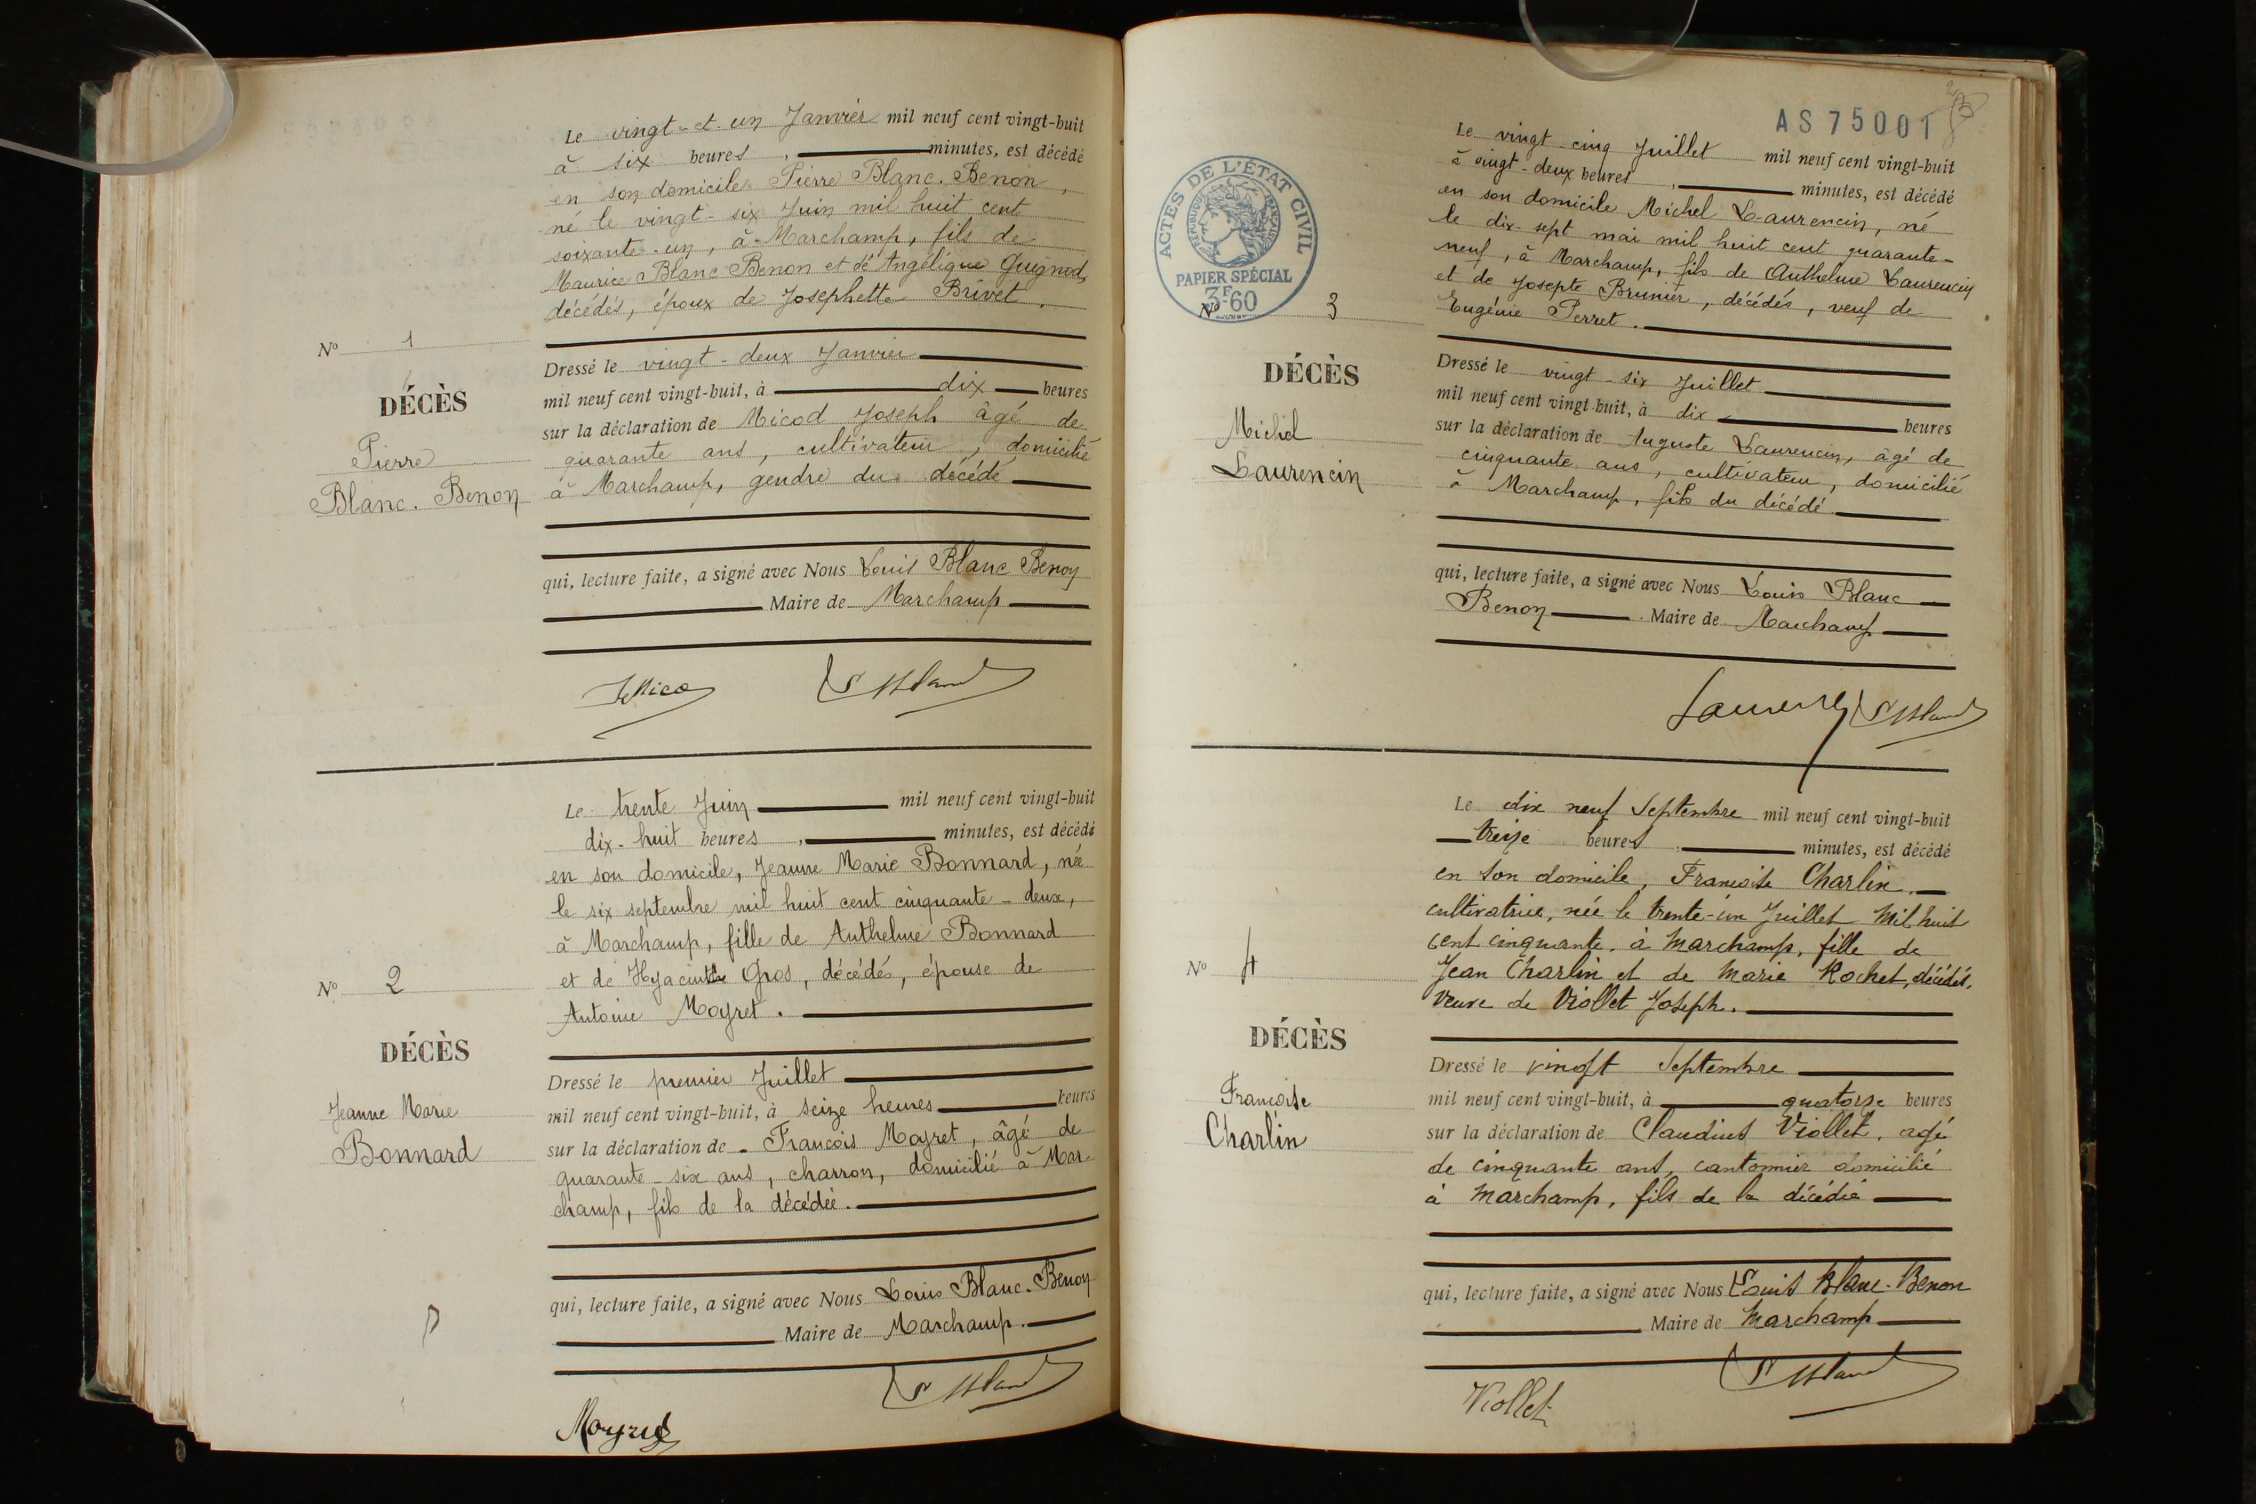 Le vingt-et-un Janvier mil neuf cent vingt-huit
à six heures, minutes, est décédé
en son domicile Pierre Blanc-Benon,
né le vingt-six Juin mil huit cent
soixante-un, à Marchamp, fils de
Maurice Blanc Benon et de Angélique
décédés, époux de Josephette Brivet.
No 1
DÉCÈS
Pierre
Blanc-Benon
Dressé le vingt-deux Janvier
mil neuf cent vingt-huit, à dix heures
sur la déclaration de Micod Joseph âgé de
quarante ans, cultivateur, domicilié
à Marchamp, gendre du décédé
qui, lecture faite, a signé avec Nous Louis Blanc Benon
Maire de Marchamp
Le trente Juin mil neuf cent vingt-huit
dix-huit heures, minutes, est décédé
en son domicile, Jeanne Marie Bonnard, née
le six septembre mil huit cent cinquante-deux,
à Marchamp, fille de Anthelme Bonnard
et de Hyacinthe Gros, décédés, épouse de
Antoine Moyret.
No 2
DÉCÈS
Jeanne Marie
Bonnard
Dressé le premier Juillet
mil neuf cent vingt-huit, à seize heures heures
sur la déclaration de François Moyret, âgé de
quarante-six ans, charron, domicilié à Mar-
champ, fils de la décédée.
qui, lecture faite, a signé avec Nous Louis Blanc-Benon
Maire de Marchamp.
AS 75001
ACTES DE L'ÉTAT CIVIL
RÉPUBLIQUE FRANÇAISE
PAPIER SPÉCIAL
3F60
Le vingt-cinq Juillet mil neuf cent vingt-huit
à vingt-deux heures, minutes, est décédé
en son domicile Michel Laurencin, né
le dix-sept mai mil huit cent quarante-
neuf, à Marchamp, fils de Anthelme Laurencin
et de Josepte Brunier, décédés, veuf de
Eugénie Perret.
No 3
DÉCÈS
Michel
Laurencin
Dressé le vingt-six Juillet
mil neuf cent vingt-huit, à dix heures
sur la déclaration de Auguste Laurencin, âgé de
cinquante ans, cultivateur, domicilié
à Marchamp, fils du décédé
qui, lecture faite, a signé avec Nous Louis Blanc
Benon Maire de Marchamp
Le dix neuf Septembre mil neuf cent vingt-huit
treize heures, minutes, est décédé
en son domicile, Francoise Charlin.
cultivatrice, née le trente-un Juillet Mil huit
cent cinquante. à Marchamp, fille de
Jean Charlin et de Marie Rochet, décédés,
Veuve de Viollet Joseph.
No 4
DÉCÈS
Francoise
Charlin
Dressé le vingt Septembre
mil neuf cent vingt-huit, à quatorze heures
sur la déclaration de Claudius Viollet, agé
de cinquante ans, cantonnier domicilié
à Marchamp, fils de la décédée
qui, lecture faite, a signé avec Nous Louis Blanc-Benon
Maire de Marchamp
Viollet